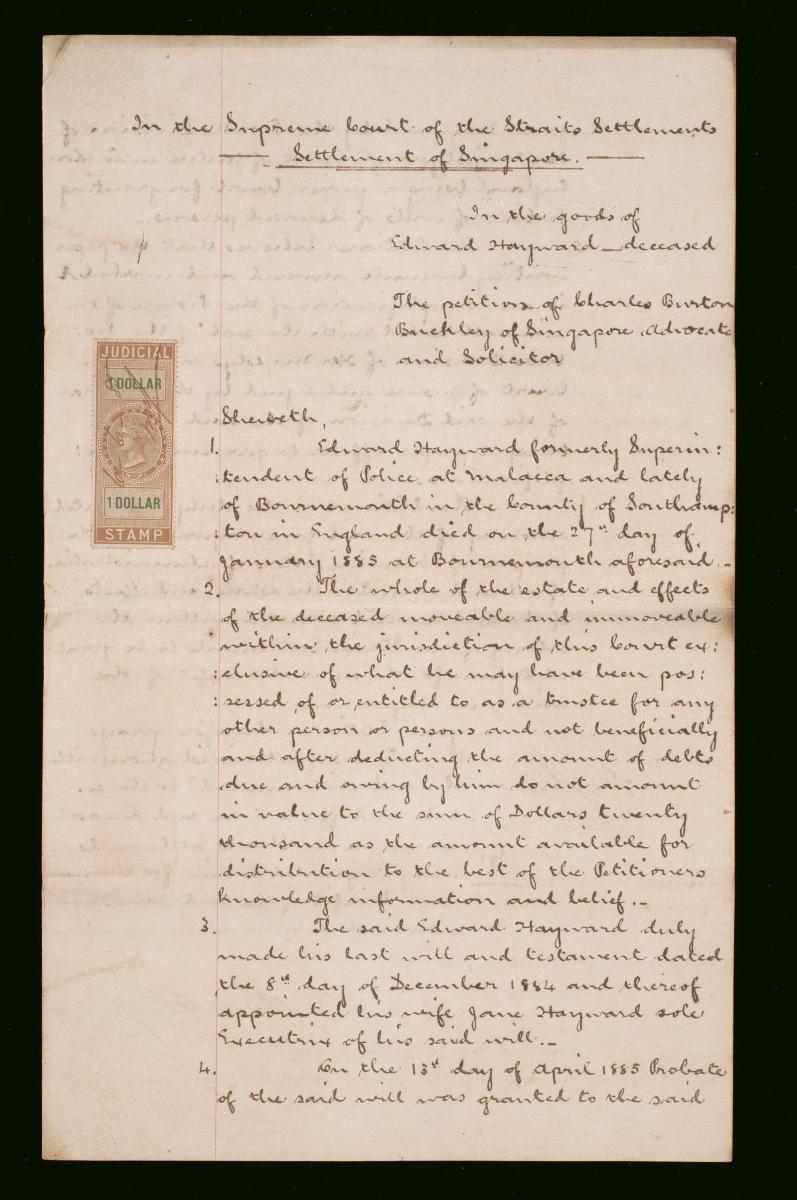 In the Supreme Court of the Straits Settlements
Settlement of Singapore.
In the goods of
Edward Hayward - deceased
The petition of Charles Burton
Buckley of Singapore Advocate
and Solicitor
JUDICIAL
1 DOLLAR
1 DOLLAR
STAMP
Sheweth,
1. Edward Hayward formerly Superin:
:tendent of Police at Malacca and lately
of Bournemouth in the County of Southamp:
:ton in England died on the 27th day of
January 1885 at Bournemouth aforesaid.-
2. The whole of the estate and effects
of the deceased moveable and immoveable
within the jurisdiction of this Court ex:
:clusive of what he may have been pos:
:sessed of or entitled to as a trustee for any
other person or persons and not beneficially
and after deducting the amount of debts
due and owing by him do not amount
in value to the sum of Dollars twenty
thousand as the amount available for
distribution to the best of the Petitioners
knowledge information and belief.-
3. The said Edward Hayward duly
made his last will and testament dated
the 8th day of December 1884 and thereof
appointed his wife Jane Hayward sole
Executrix of his said will.-
4. On the 13th day of April 1885 Probate
of the said will was granted to the said